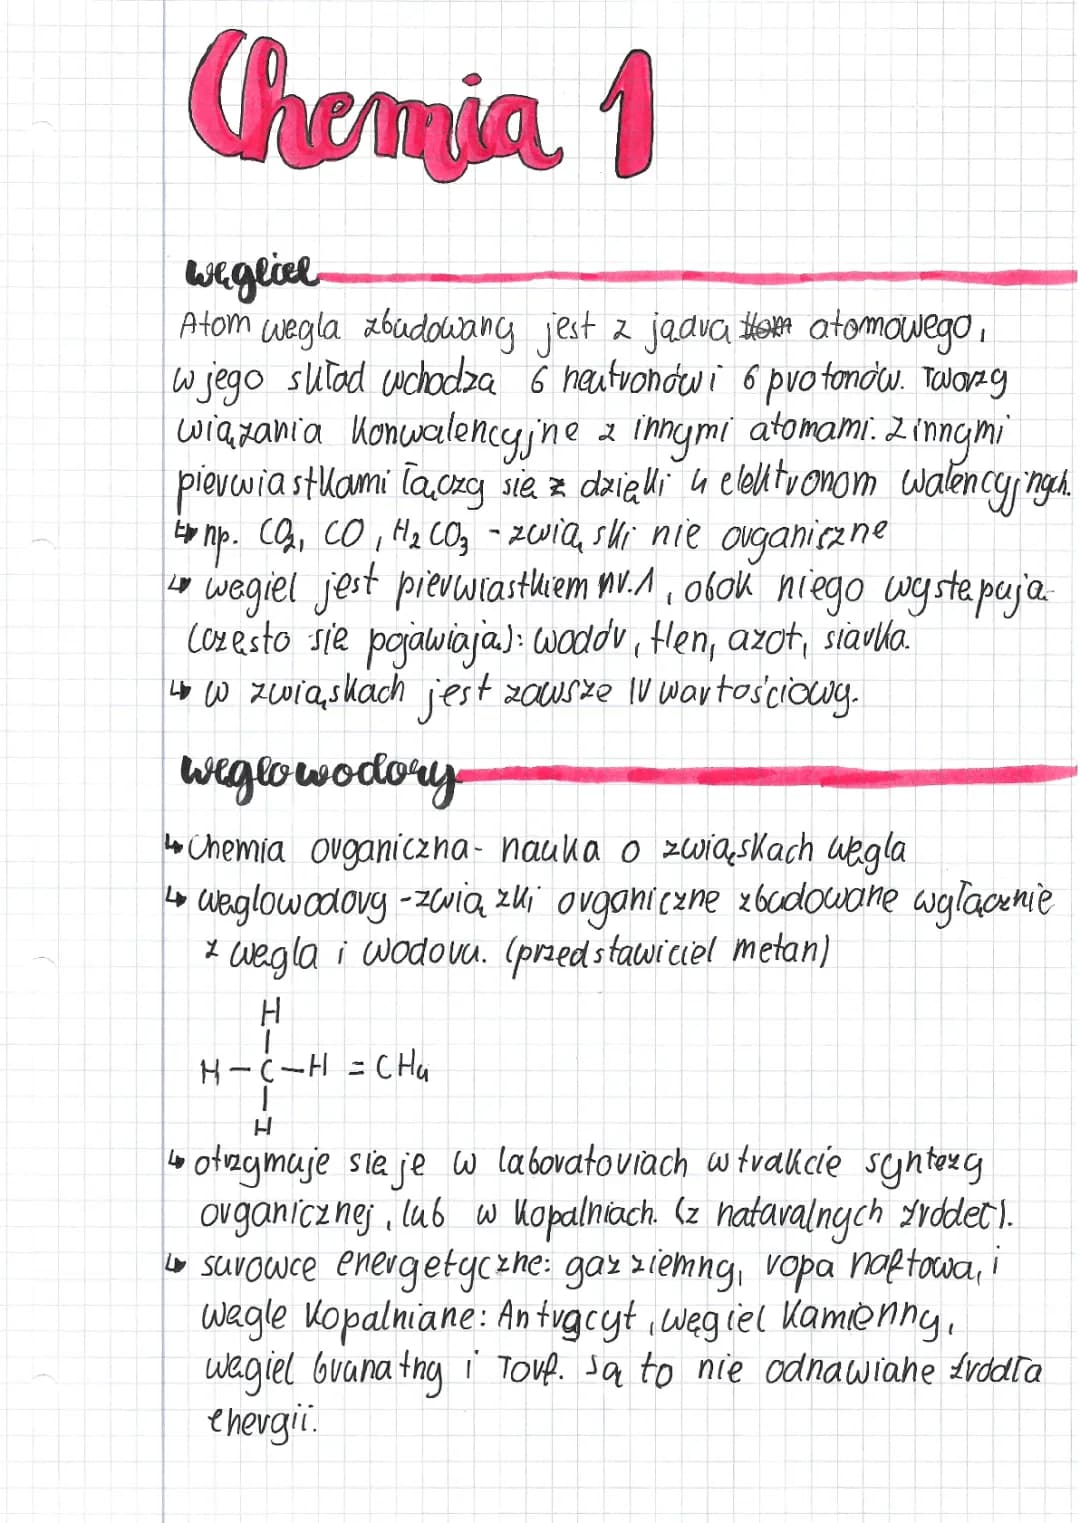 Chemia 1
węgiel
Atom węgla zbudowany jest z jądra atomowego,
w jego skład wchodzą 6 neutronów i 6 protonów. Tworzy
wiązania konwalencyjne z innymi atomami. Z innymi
pierwiastkami łączy się z dzięki 4 elektronom walencyjnych.
↳ np. CO₂, CO, H₂CO₃ - związki nie organiczne
↳ węgiel jest pierwiastkiem nr.1, obok niego występują
(często się pojawiają): wodór, tlen, azot, siarka.
↳ w związkach jest zawsze IV wartościowy.
węglowodory
↳ Chemia organiczna - nauka o związkach węgla
↳ węglowodory - związki organiczne zbudowane wyłącznie
z węgla i wodoru. (przedstawiciel metan)
H
|
H-C-H = CH₄
|
H
↳ otrzymuje się je w laboratoriach w trakcie syntezy
organicznej, lub w kopalniach. (z naturalnych źródeł).
↳ surowce energetyczne: gaz ziemny, ropa naftowa, i
węgle kopalniane: Antracyt, węgiel kamienny,
węgiel brunatny i Torf. są to nie odnawiane źródła
energii.